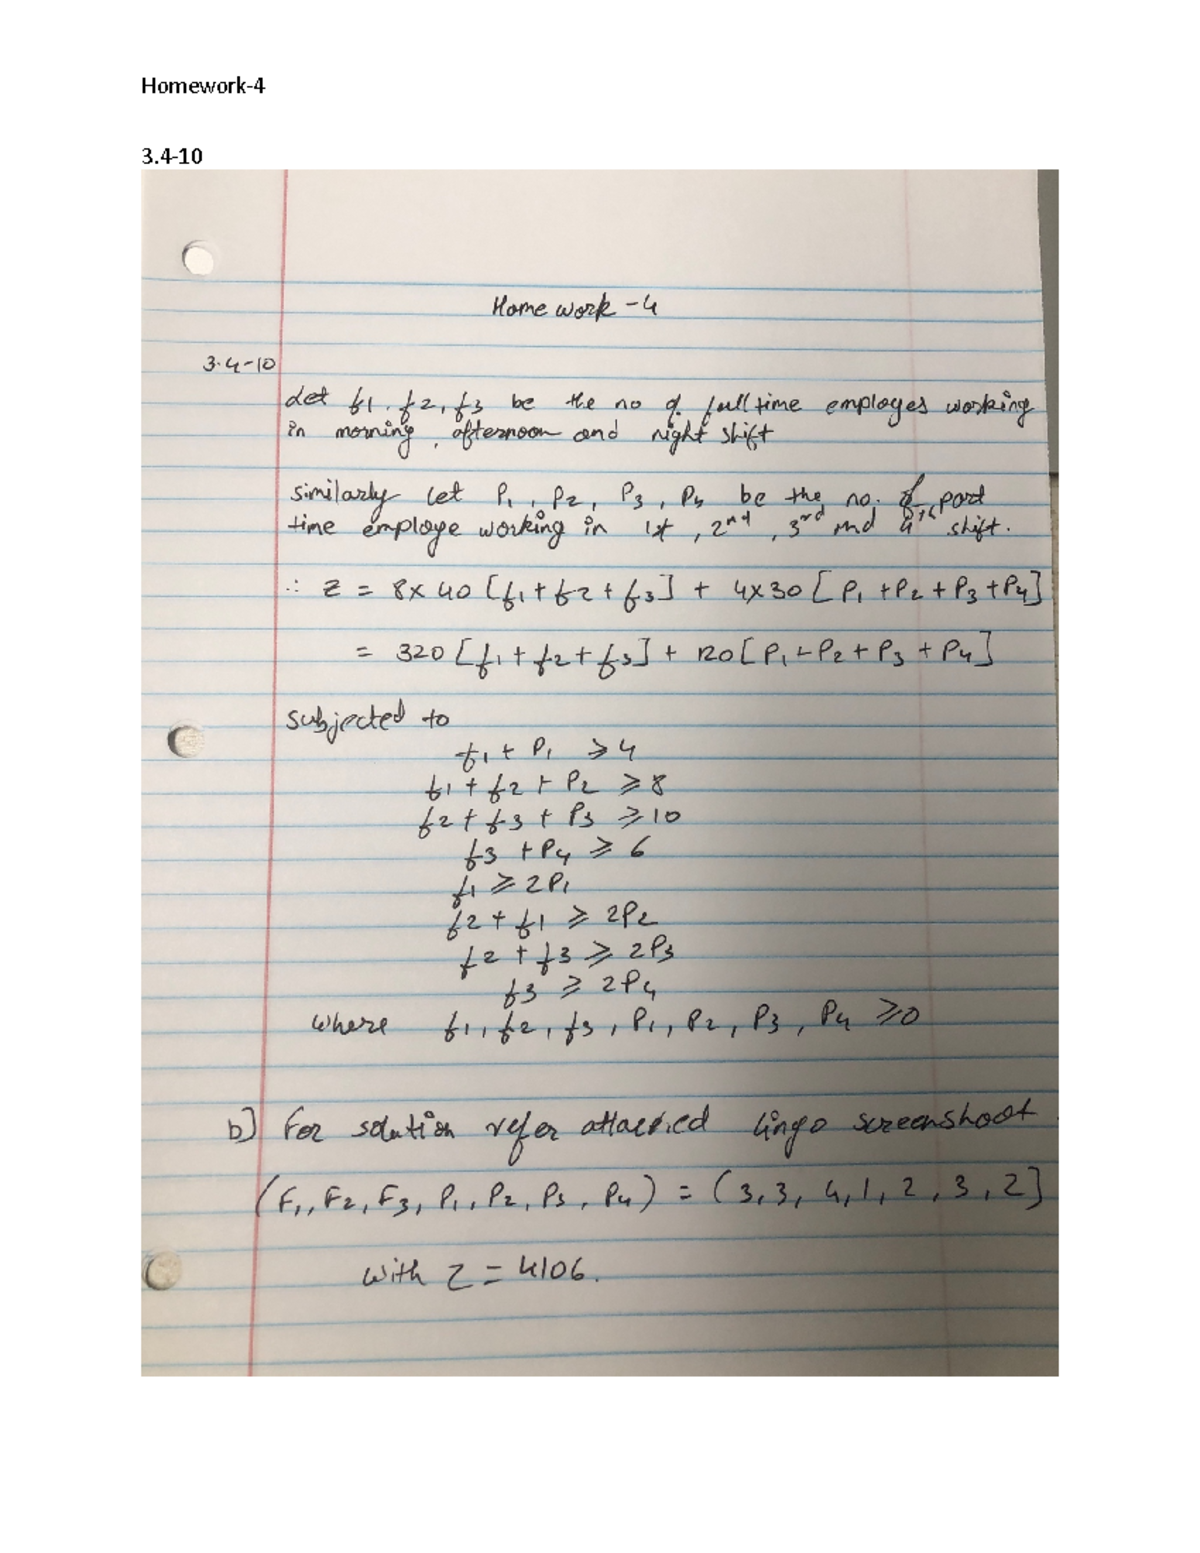 Homework-4
3.4-10
Home work - 4
3.4-10
Let f1, f2, f3 be the no of full time employes working
in morning, afternoon and night shift
similarly let P1, P2, P3, P4 be the no. of part
time employe working in 1st, 2nd, 3rd and 4th shift.
∴ Z = 8x40 [f1 + f2 + f3] + 4x30 [P1 + P2 + P3 + P4]
= 320 [f1 + f2 + f3] + 120 [P1 + P2 + P3 + P4]
subjected to
f1 + P1 ≥ 4
f1 + f2 + P2 ≥ 8
f2 + f3 + P3 ≥ 10
f3 + P4 ≥ 6
f1 ≥ 2P1
f2 + f1 ≥ 2P2
f2 + f3 ≥ 2P3
f3 ≥ 2P4
where f1, f2, f3, P1, P2, P3, P4 ≥ 0
b) For solution refer attached lingo screenshoot
(F1, F2, F3, P1, P2, P3, P4) = (3, 3, 4, 1, 2, 3, 2]
with Z = 4106.